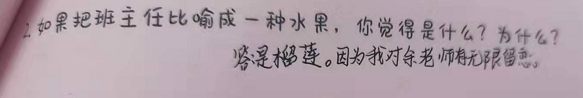 2.如果把班主任比喻成一种水果，你觉得是什么？为什么？
答是榴莲。因为我对余老师有无限留恋。